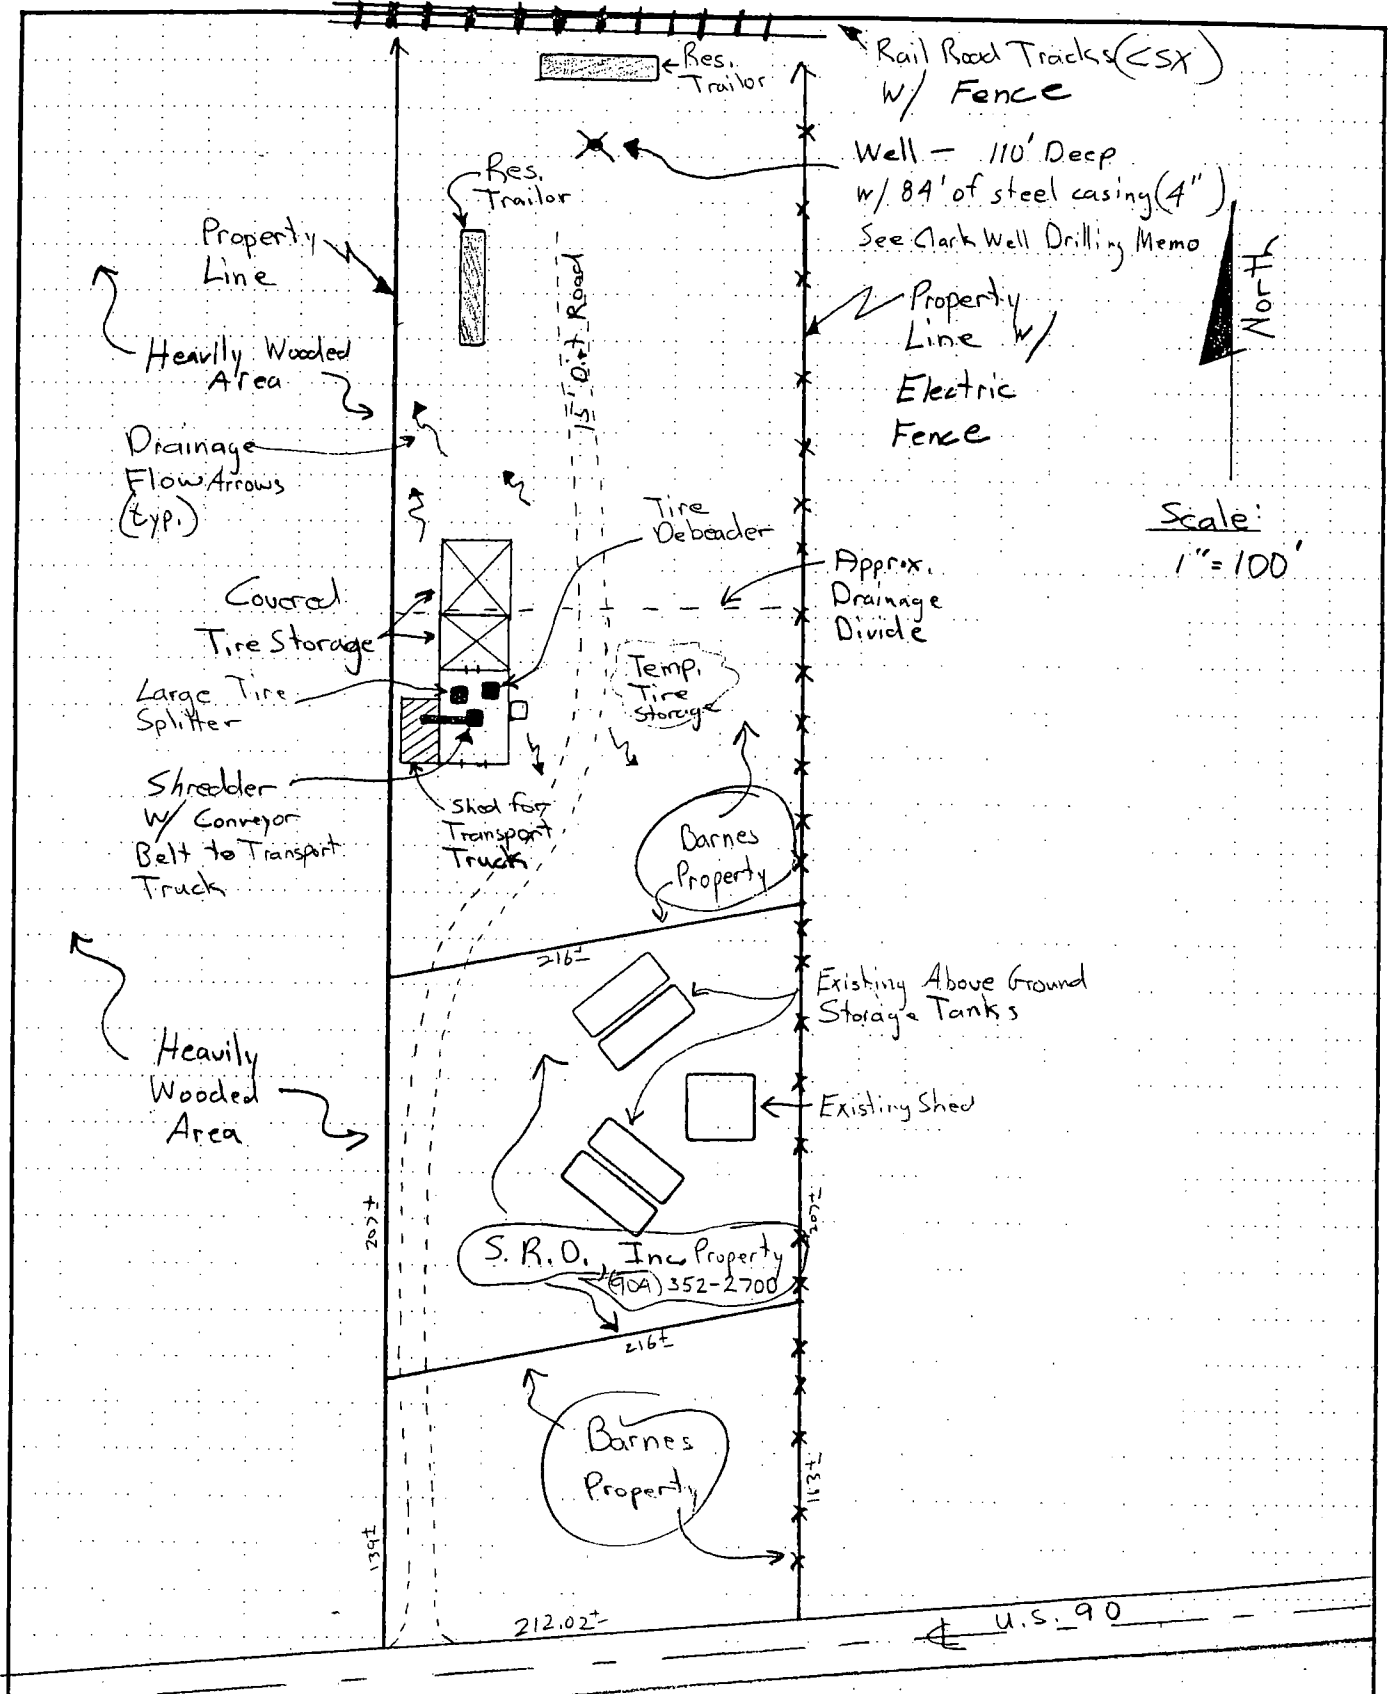 Rail Road Tracks (CSX)
w/ Fence
Res.
Trailor
Well - 110' Deep
w/ 84' of steel casing (4")
See Clark Well Drilling Memo
Res.
Trailor
Property
Line
North
Property
Line w/
Electric
Fence
15' Dirt Road
Heavily Wooded
Area
Drainage
Flow Arrows
(typ.)
Scale:
1" = 100'
Tire
Debeader
Approx.
Drainage
Divide
Covered
Tire Storage
Temp.
Tire
Storage
Large Tire
Splitter
Shredder
w/ Conveyor
Belt to Transport
Truck
Shed for
Transport
Truck
Barnes
Property
216±
Existing Above Ground
Storage Tanks
Heavily
Wooded
Area
Existing Shed
207±
207±
S. R. D., Inc. Property
(904) 352-2700
216±
Barnes
Property
163±
139±
212.02±
U.S. 90